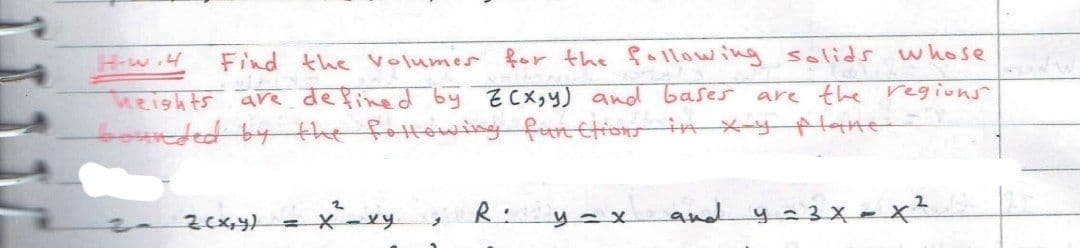 H.w.4 Find the volumes for the following solids whose
heights are defined by Z(x,y) and bases are the regions
bounded by the following functions in x-y plane.
2- Z(x,y) = x²-xy , R: y=x and y=3x-x²